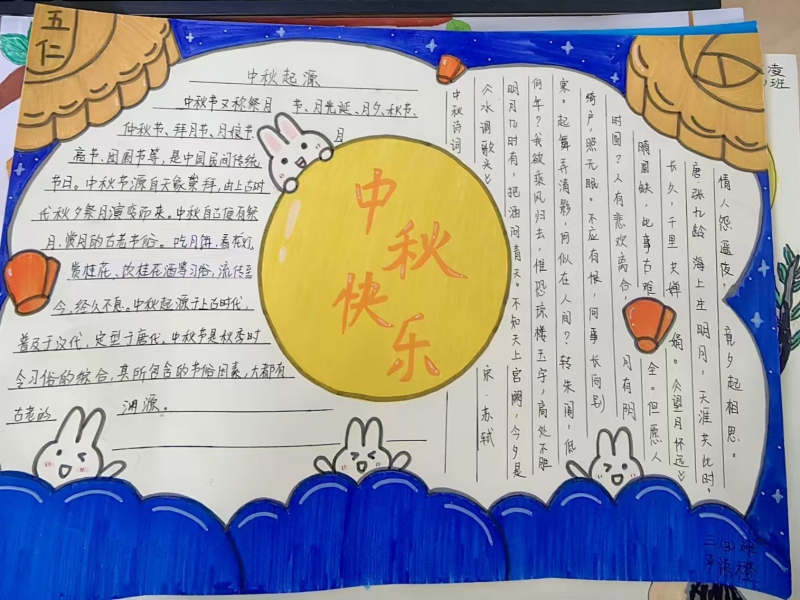 五
仁
中秋起源
中秋节又称祭月 节、月光延、月夕、秋节、
仲秋节、拜月节、月娘节 月
高节、团圆节等，是中国民间传统
节日。中秋节源自天象崇拜，由上古时
代秋夕祭月演变而来。中秋自古便有祭
月、赏月的古老节俗。吃月饼、看花灯、
赏桂花、饮桂花酒等习俗，流传至
今，经久不息。中秋起源于上古时代，
普及于汉代，定型于唐代，中秋节是秋季时
令习俗的综合，其所包含的节俗因素，大都有
古老的 渊源。
中秋快乐
中秋诗词
《水调歌头》 宋·苏轼
明月几时有，把酒问青天。不知天上宫阙，今夕是
何年？我欲乘风归去，惟恐琼楼玉宇，高处不胜
寒。起舞弄清影，何似在人间？转朱阁，低
绮户，照无眠。不应有恨，何事长向别
时圆？人有悲欢离合，月有阴
晴圆缺，此事古难全。但愿人
长久，千里共婵娟。《望月怀远》
唐·张九龄 海上生明月，天涯共此时。
情人怨遥夜，竟夕起相思。
凌
班